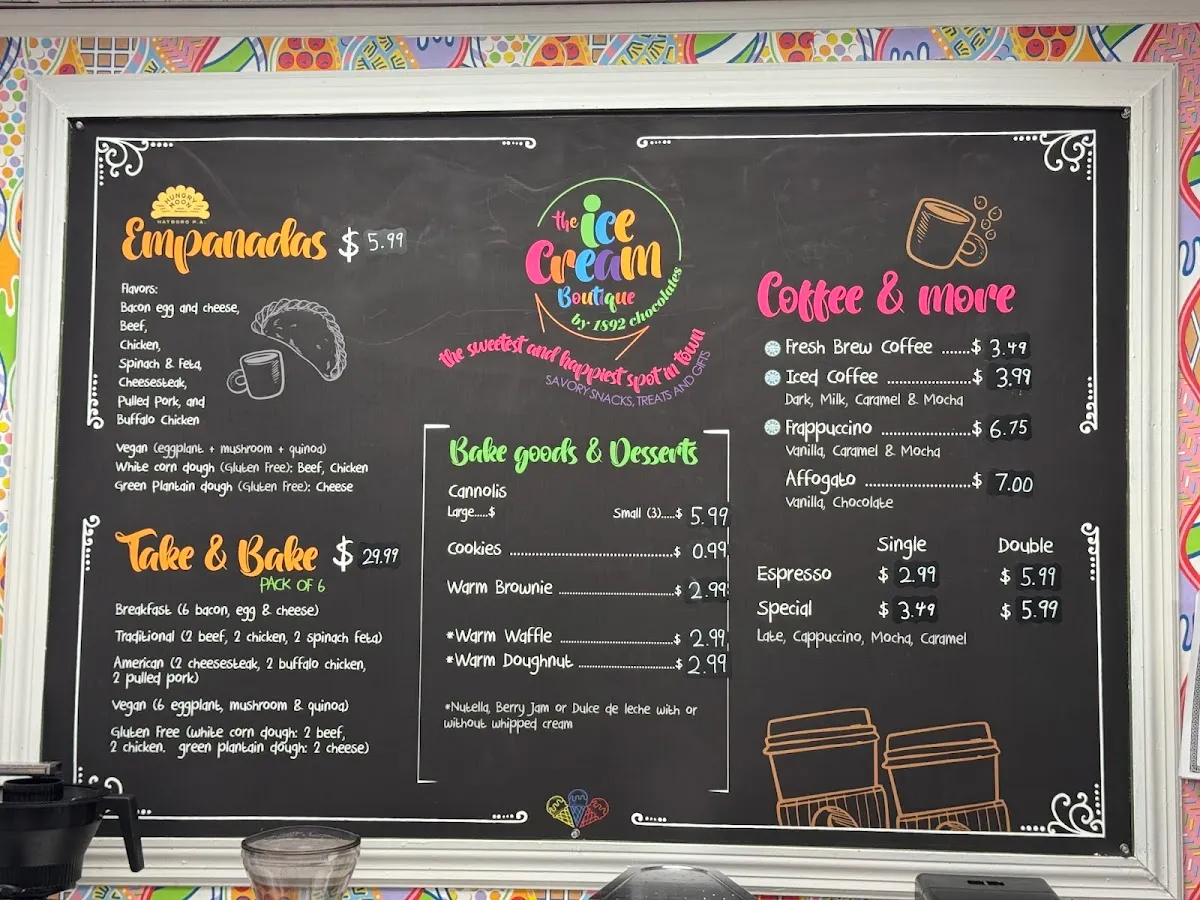 HUNGRY
MOON
HATBORO P.A.
Empanadas $ 5.99
Flavors:
Bacon egg and cheese,
Beef,
Chicken,
Spinach & Feta,
Cheesesteak,
Pulled Pork, and
Buffalo Chicken
Vegan (eggplant + mushroom + quinoa)
White corn dough (Gluten Free): Beef, Chicken
Green Plantain dough (Gluten Free): Cheese
Take & Bake $ 29.99
PACK OF 6
Breakfast (6 bacon, egg & cheese)
Traditional (2 beef, 2 chicken, 2 spinach feta)
American (2 cheesesteak, 2 buffalo chicken,
2 pulled pork)
Vegan (6 eggplant, mushroom & quinoa)
Gluten Free (white corn dough: 2 beef,
2 chicken. green plantain dough: 2 cheese)
the ice
Cream
Boutique
by 1892 chocolates
the sweetest and happiest spot in town
SAVORY SNACKS, TREATS AND GIFTS
Bake goods & Desserts
Cannolis
Large.....$ Small (3)....$ 5.99
Cookies ........................................$ 0.99
Warm Brownie ............................$ 2.99
*Warm Waffle ............................$ 2.99
*Warm Doughnut ........................$ 2.99
*Nutella, Berry Jam or Dulce de leche with or
without whipped cream
Coffee & more
Fresh Brew Coffee .......$ 3.49
Iced Coffee ..................$ 3.99
Dark, Milk, Caramel & Mocha
Frappuccino ...................$ 6.75
Vanilla, Caramel & Mocha
Affogato ........................$ 7.00
Vanilla, Chocolate
Single Double
Espresso $ 2.99 $ 5.99
Special $ 3.49 $ 5.99
Late, Cappuccino, Mocha, Caramel